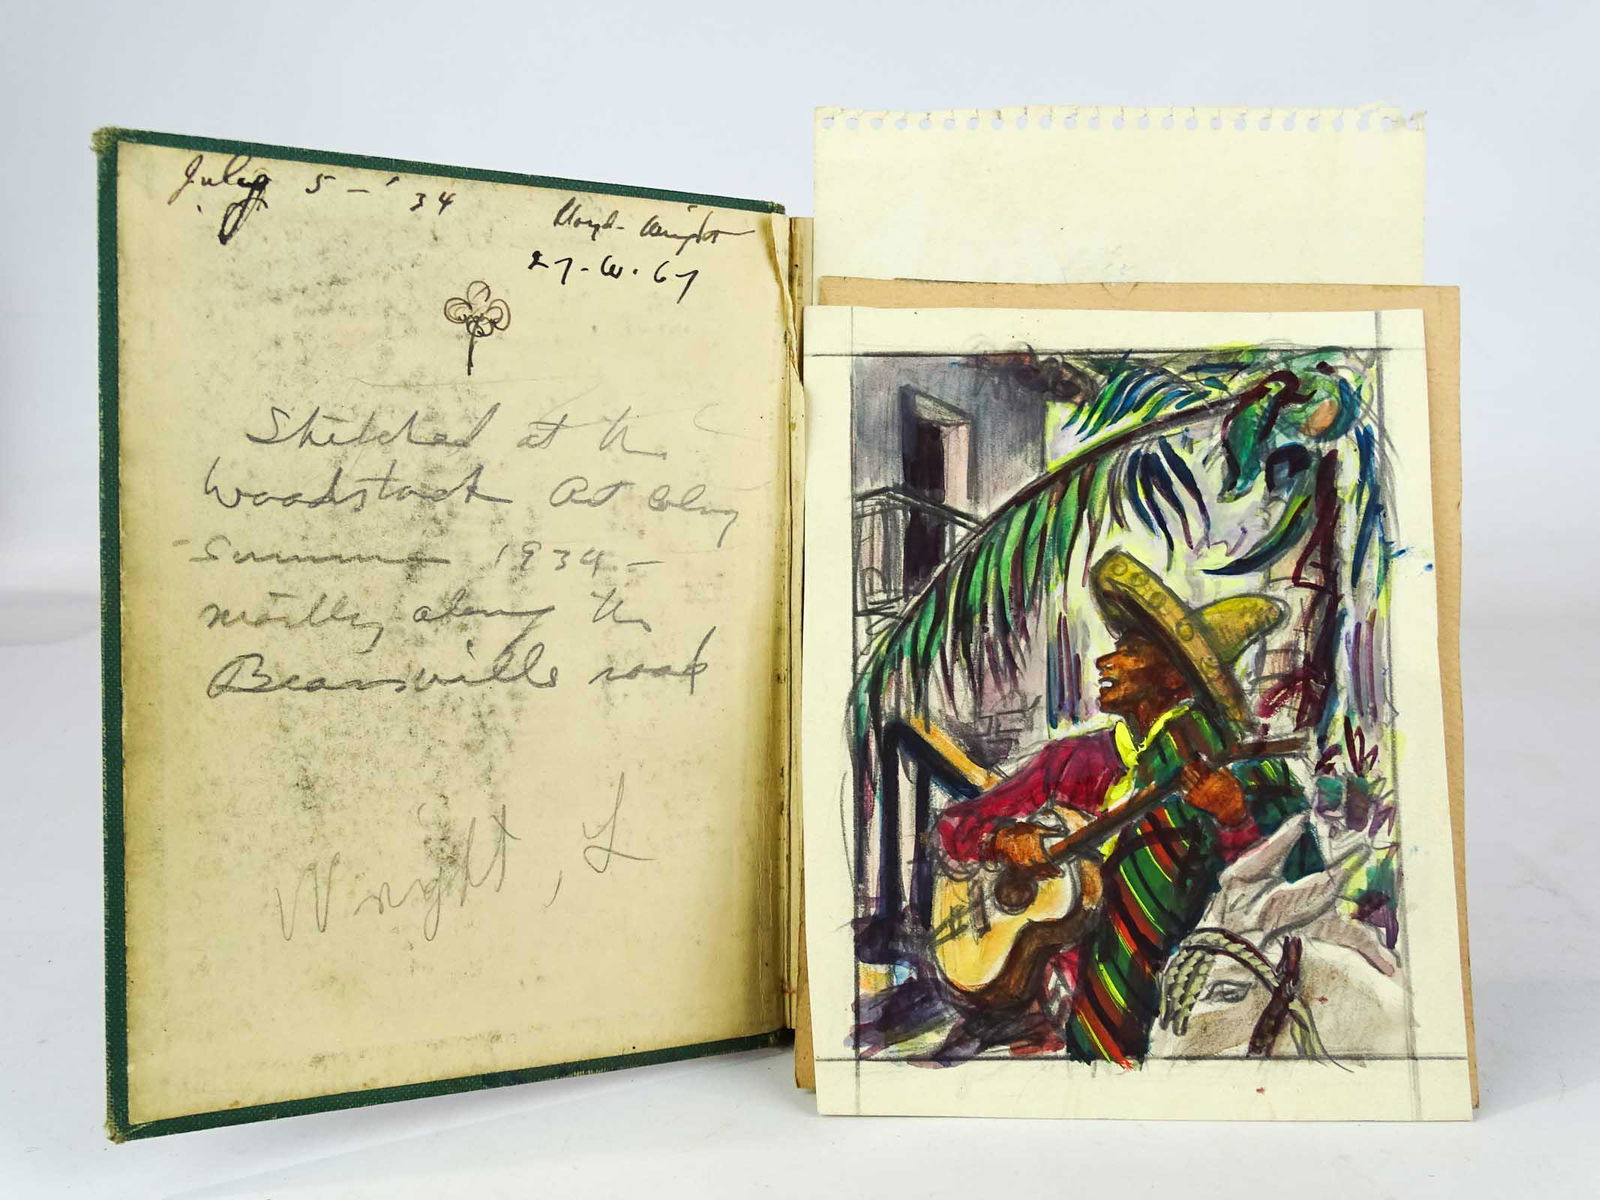 July 5 - '34
Lloyd - Wright
27 - W. 67
Sketched at the
Woodstock Art Colony
- Summer 1934 -
mostly along the
Bearsville road
Wright, L